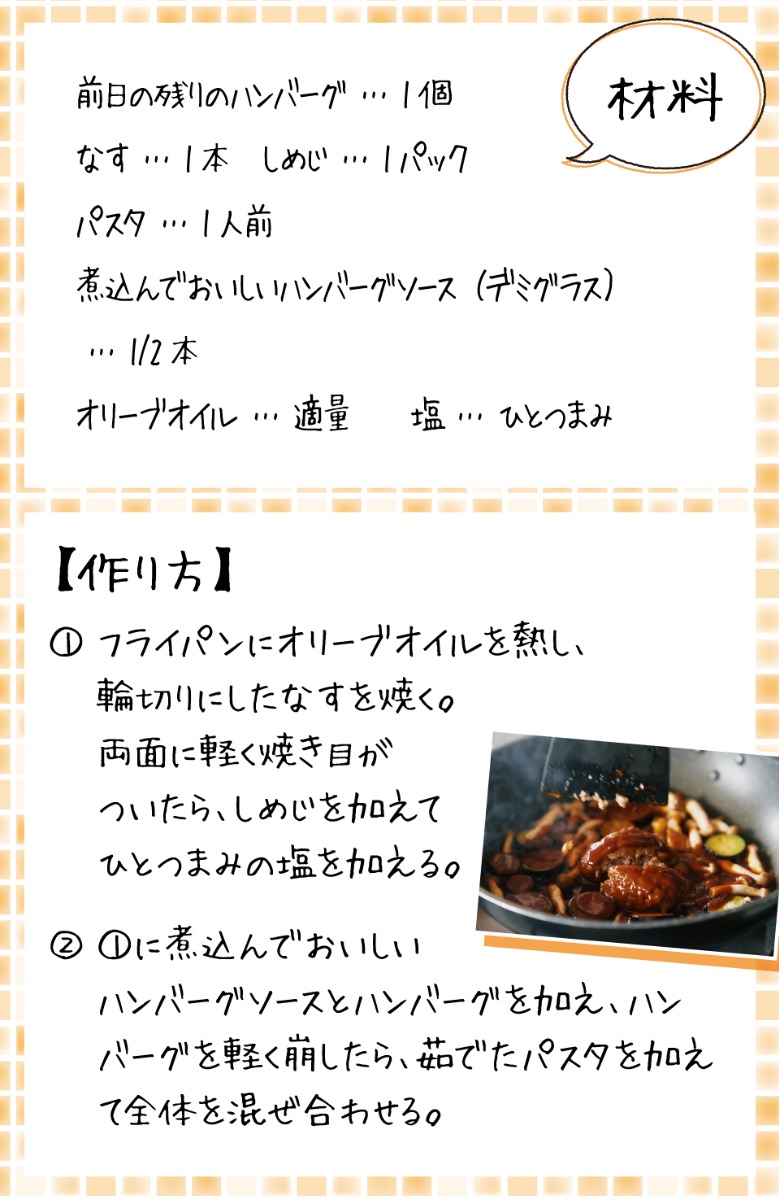 材料
前日の残りのハンバーグ … 1個
なす … 1本　しめじ … 1パック
パスタ … 1人前
煮込んでおいしいハンバーグソース（デミグラス）
… 1/2本
オリーブオイル … 適量　　塩 … ひとつまみ
【作り方】
① フライパンにオリーブオイルを熱し、
輪切りにしたなすを焼く。
両面に軽く焼き目が
ついたら、しめじを加えて
ひとつまみの塩を加える。
② ①に煮込んでおいしい
ハンバーグソースとハンバーグを加え、ハン
バーグを軽く崩したら、茹でたパスタを加え
て全体を混ぜ合わせる。